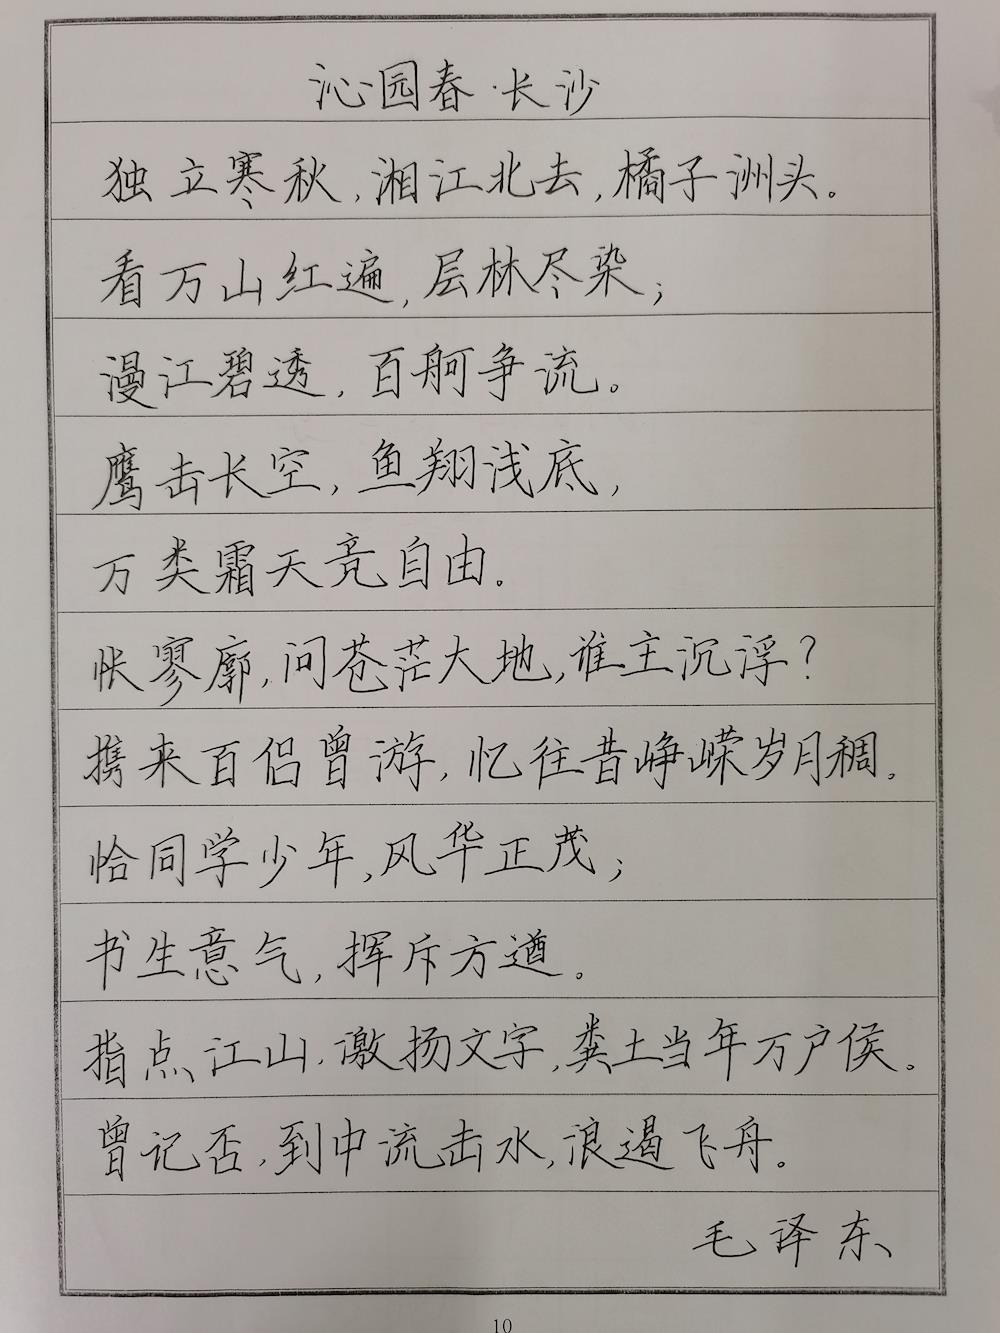 沁园春·长沙
独立寒秋,湘江北去,橘子洲头。
看万山红遍,层林尽染;
漫江碧透,百舸争流。
鹰击长空,鱼翔浅底,
万类霜天竞自由。
怅寥廓,问苍茫大地,谁主沉浮?
携来百侣曾游,忆往昔峥嵘岁月稠。
恰同学少年,风华正茂;
书生意气,挥斥方遒。
指点江山,激扬文字,粪土当年万户侯。
曾记否,到中流击水,浪遏飞舟。
毛泽东
10